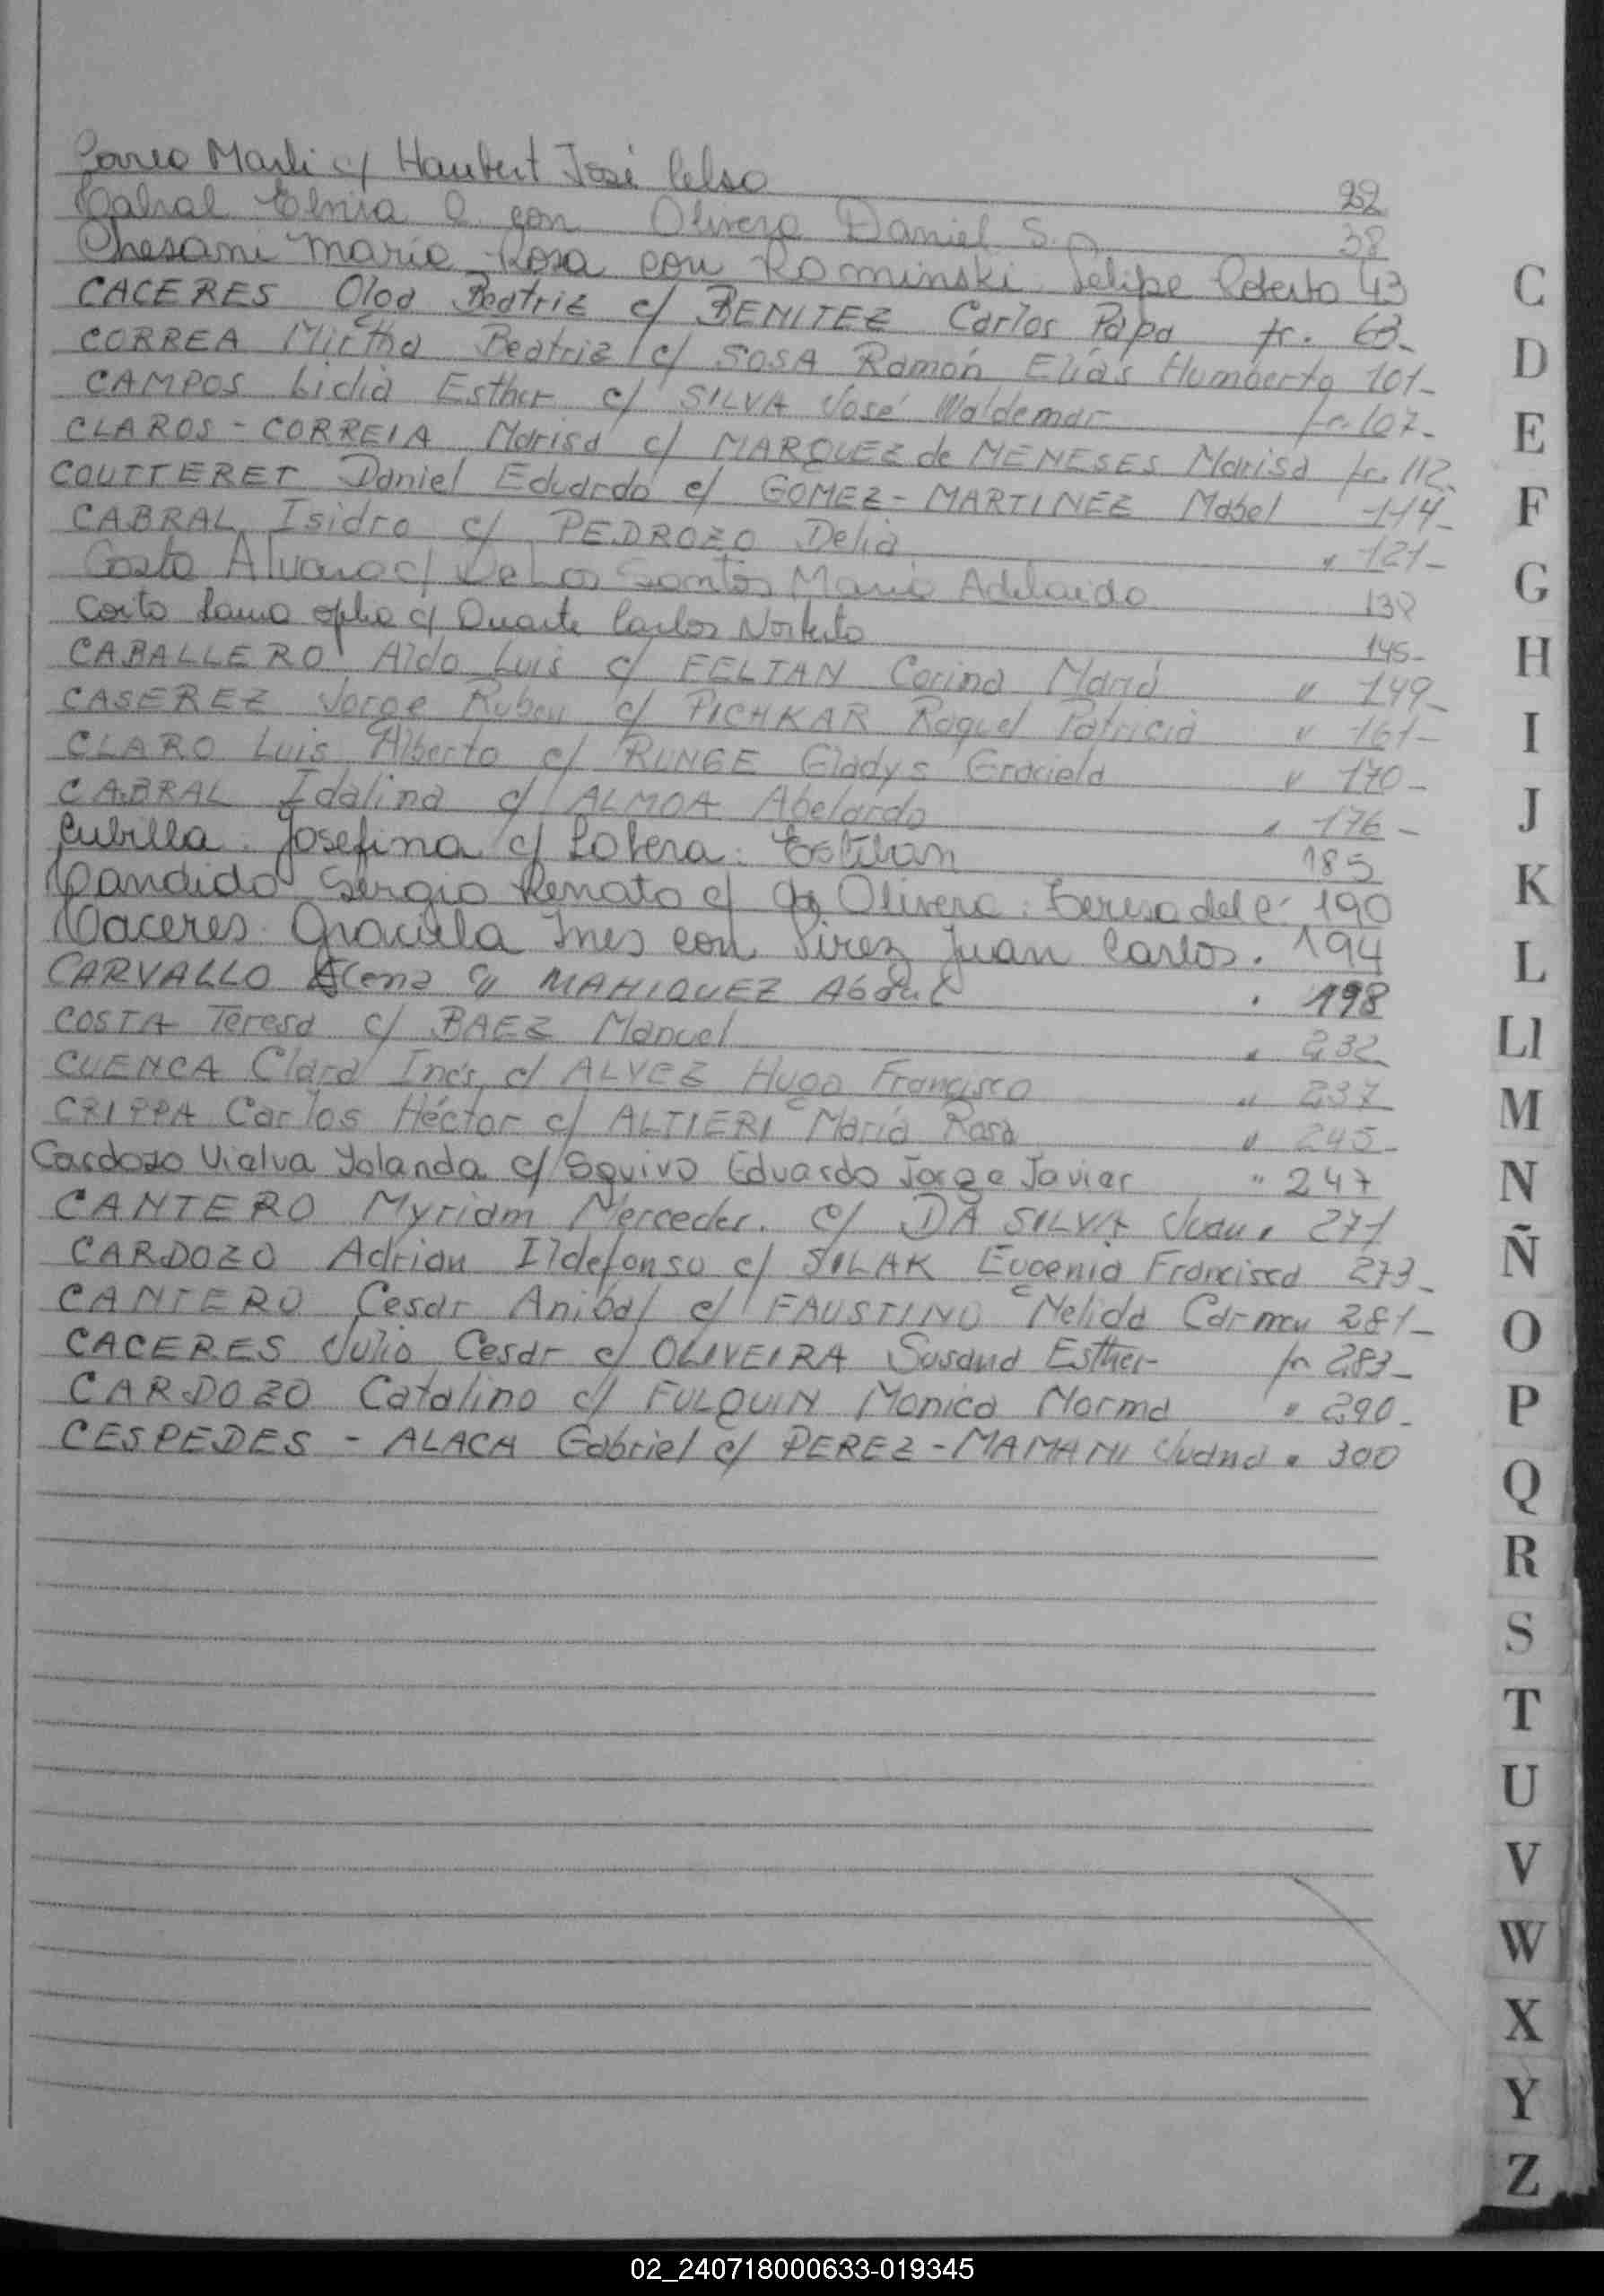 Correa Marli c/ Haubert José Celso 22
Cabral Elvia Q. con Olivera Daniel S. 38
Chesani Maria Rosa con Rominski Felipe Roberto 43
CACERES Olga Beatriz c/ BENITEZ Carlos Papa fr. 63-
CORREA Mirtha Beatriz c/ SOSA Ramón Elías Humberto 101-
CAMPOS Lidia Esther c/ SILVA José Waldemar fr. 107-
CLAROS - CORREIA Marisa c/ MARQUEZ de MENESES Marisa fr. 112-
COUTTERET Daniel Eduardo c/ GOMEZ - MARTINEZ Mabel 114-
CABRAL Isidro c/ PEDROZO Delia " 121-
Costa Alvaro c/ De Los Santos Maria Adelaida 138
Costo c/ Duarte Carlos Norberto 145-
CABALLERO Aldo Luis c/ FELTAN Corina María " 149-
CASEREZ Jorge Ruben c/ PICHKAR Raquel Patricia " 161-
CLARO Luis Alberto c/ RUNGE Gladys Graciela " 170-
CABRAL Idalina c/ ALMOA Abelardo " 176-
Cubilla. Josefina c/ Lovera. Esteban 185
Candido Sergio Renato c/ da Olivera: Teresa del C. 190
Caceres. Graciela Ines con Pirez Juan Carlos. 194
CARVALLO Elena c/ MAHIQUEZ Abdul " 198
COSTA Teresa c/ BAEZ Manuel " 232
CUENCA Clara Inés c/ ALVEZ Hugo Francisco " 237
CRIPPA Carlos Héctor c/ ALTIERI María Rosa " 245-
Cardozo Vialva Yolanda c/ Squivo Eduardo Jorge Javier " 247
CANTERO Myriam Mercedes. c/ DA SILVA Juan " 271
CARDOZO Adrian Ildefonso c/ SILAK Eugenia Francisca 273-
CANTERO Cesar Anibal c/ FAUSTINO Nelida Carmen 281-
CACERES Julio Cesar c/ OLIVEIRA Susana Esther fr 283-
CARDOZO Catalino c/ FULQUIN Monica Norma " 290-
CESPEDES - ALACA Gabriel c/ PEREZ - MAMANI Juana " 300
C
D
E
F
G
H
I
J
K
L
Ll
M
N
Ñ
O
P
Q
R
S
T
U
V
W
X
Y
Z
02_240718000633-019345